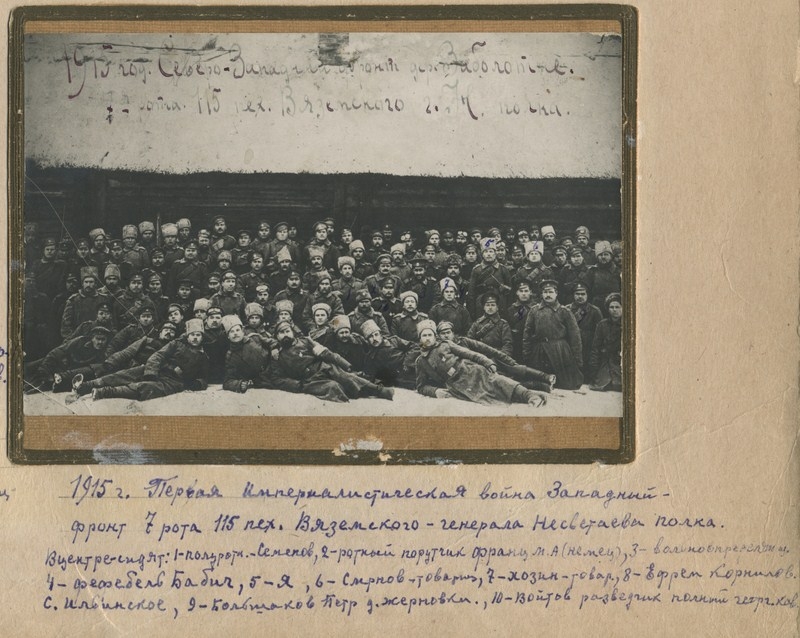 1915 год. Северо-Западный фронт дер. Заболотье.
7 рота. 115 пех. Вяземского г. Н. полка.
1915 г. Первая Империалистическая война Западный-
фронт 7 рота 115 пех. Вяземского-генерала Несветаева полка.
В центре-сидят: 1-полуротн.-Семенов, 2-ротный порутчик франц М.А (немец), 3-
4-фефебель Бабич, 5-Я, 6-Смрнов-товарищ, 7-хозин-товар, 8-Ефрем Корнилов.
С. Ильинское, 9-Большаков Петр д. Жерновки., 10-Войтов разведчик полный георг. кав.